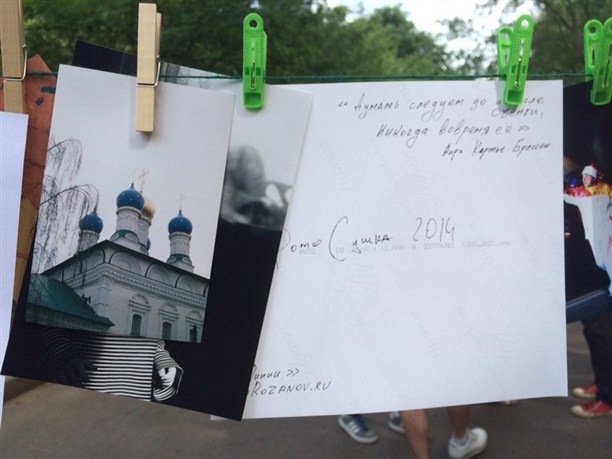 "Думать следует до и после
съемки,
Никогда вовремя ее»
Анри Картье-Брессон
Фото Сушка 2014
Линии >>
Rozanov.ru